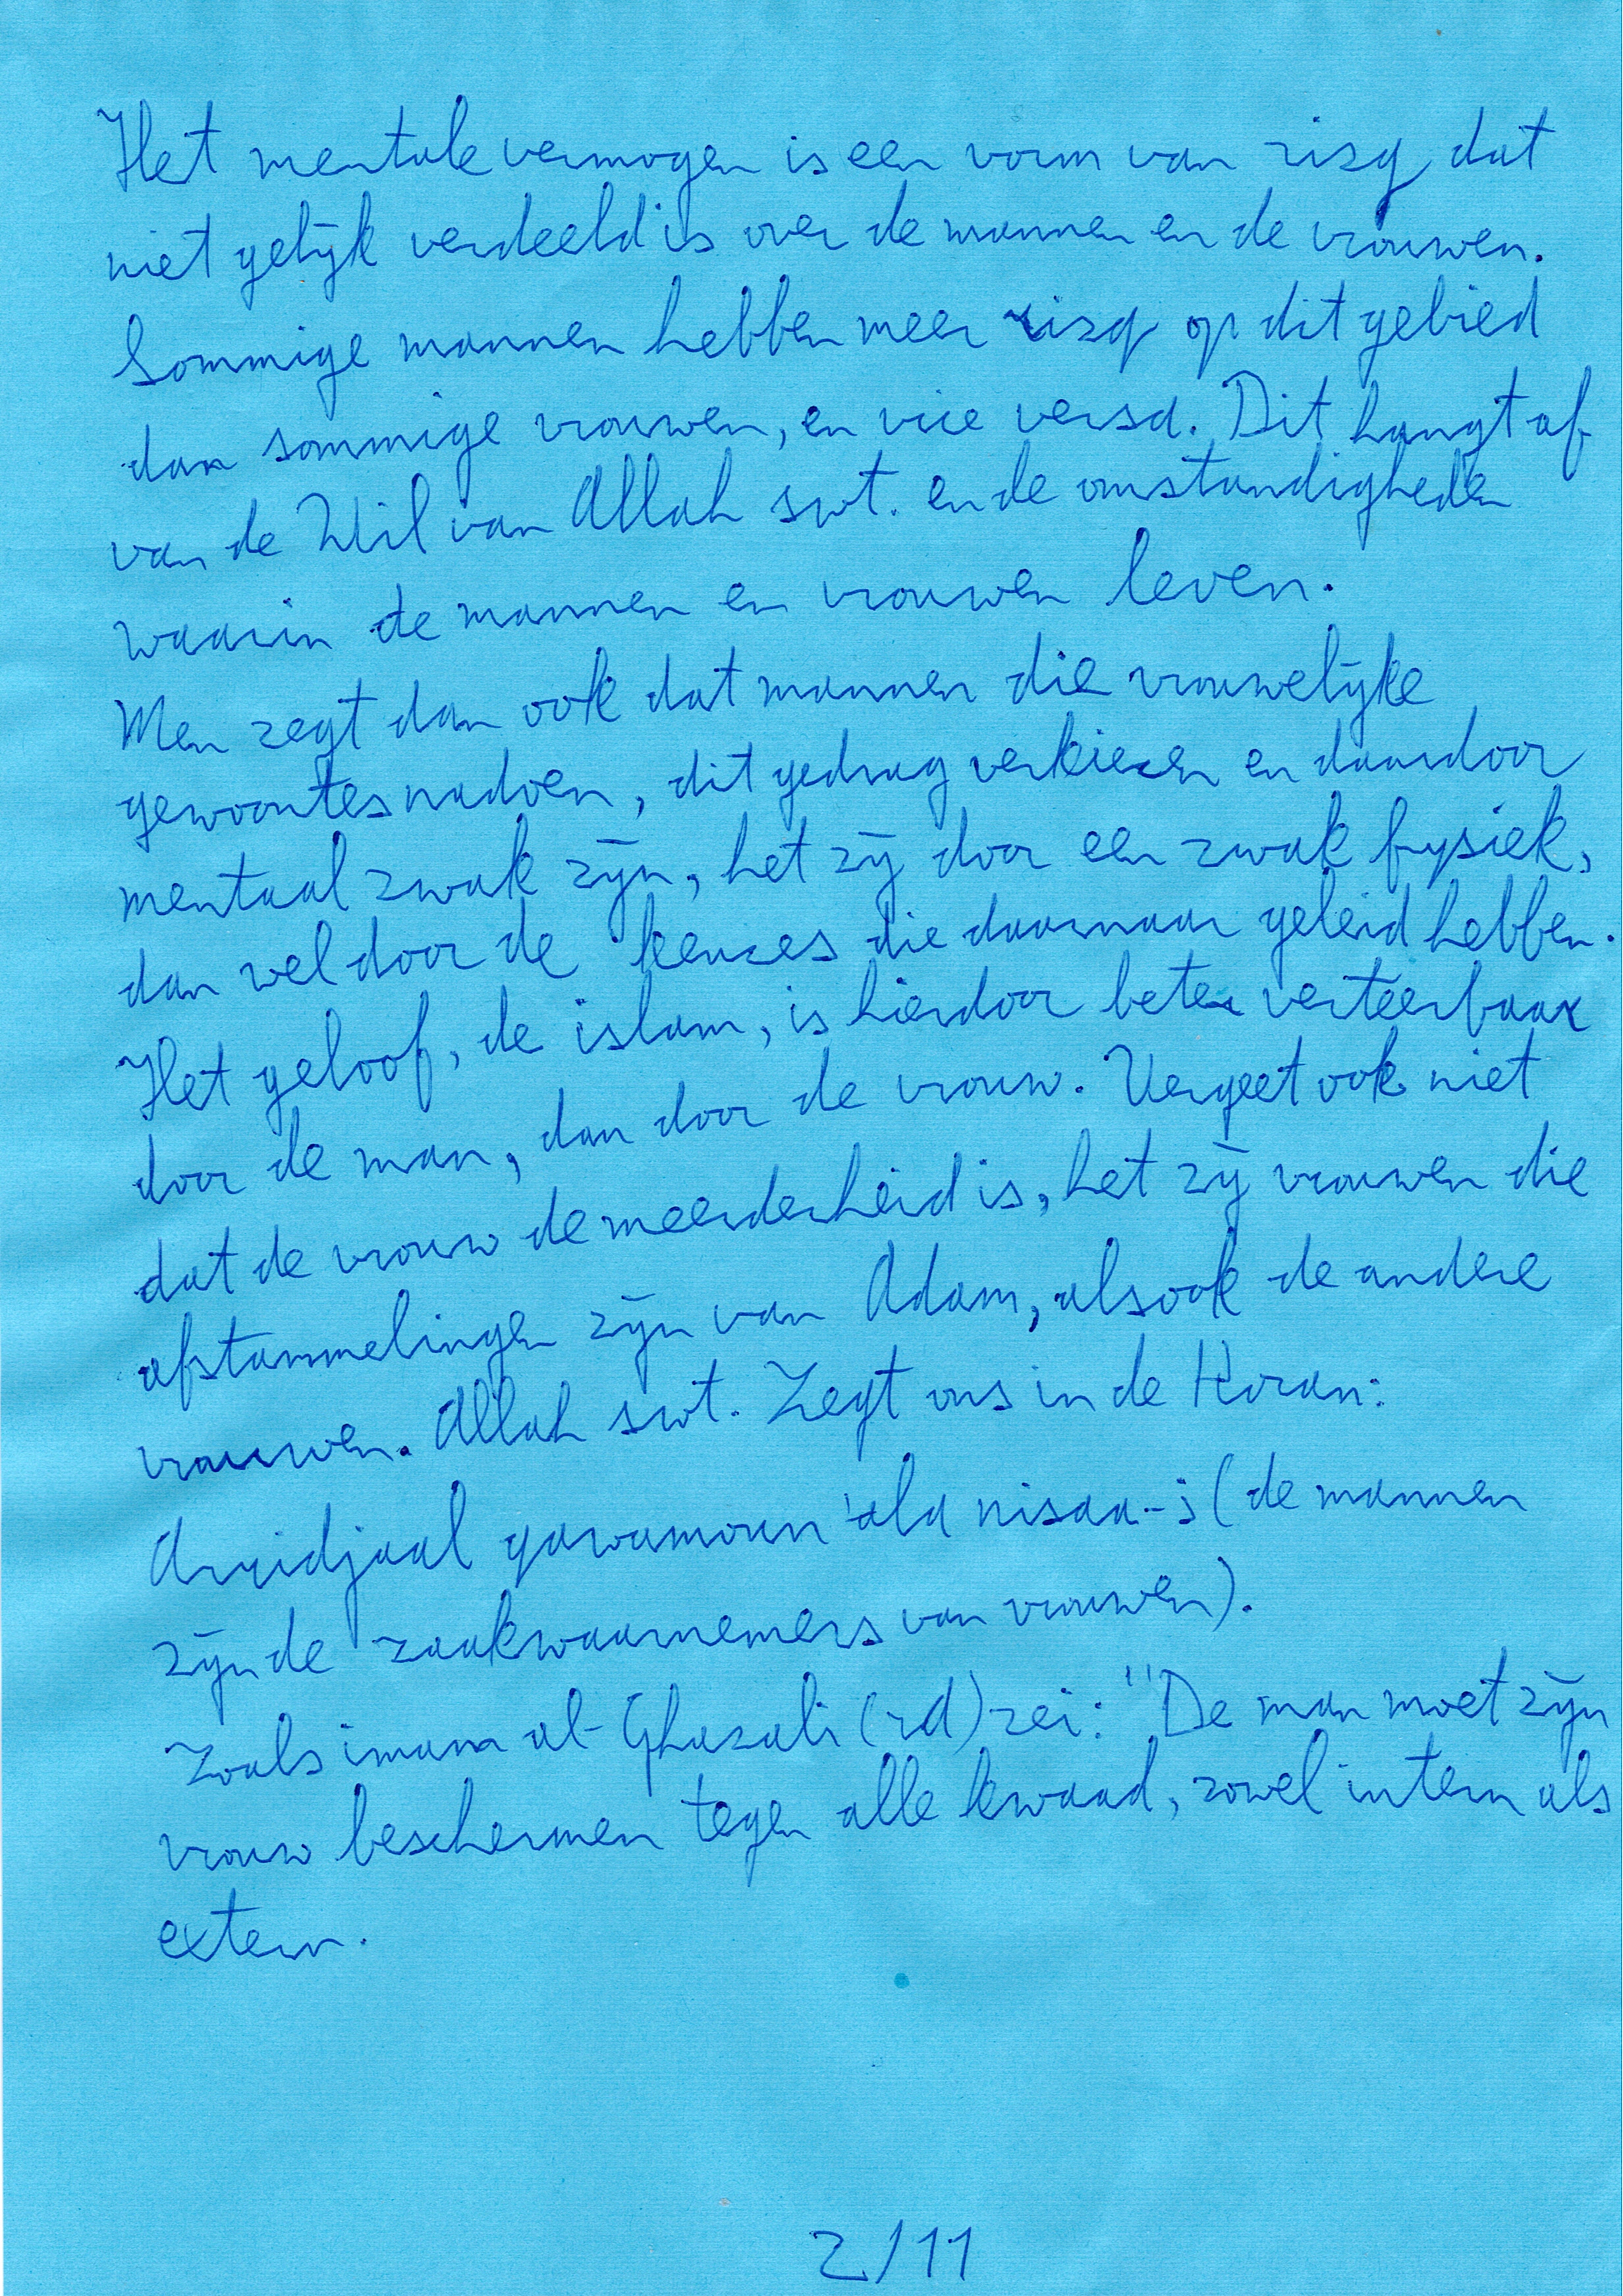 Het mentale vermogen is een vorm van rizq dat
niet gelijk verdeeld is over de mannen en de vrouwen.
Sommige mannen hebben meer rizq op dit gebied
dan sommige vrouwen, en vice versa. Dit hangt af
van de Wil van Allah swt. en de omstandigheden
waarin de mannen en vrouwen leven.
Men zegt dan ook dat mannen die vrouwelijke
gewoontes nadoen, dit gedrag verkiezen en daardoor
mentaal zwak zijn, het zij door een zwak fysiek,
dan wel door de keuzes die daarnaar geleid hebben.
Het geloof, de islam, is hierdoor beter verteerbaar
door de man, dan door de vrouw. Vergeet ook niet
dat de vrouw de meerderheid is, het zij vrouwen die
afstammelingen zijn van Adam, alsook de andere
vrouwen. Allah swt. Zegt ons in de Koran:
Arridjaal qawamoun 'ala nisaa-i (de mannen
zijn de zaakwaarnemers van vrouwen).
Zoals imam al-Ghazali (rd) zei: "De man moet zijn
vrouw beschermen tegen alle kwaad, zowel intern als
extern.
2/11